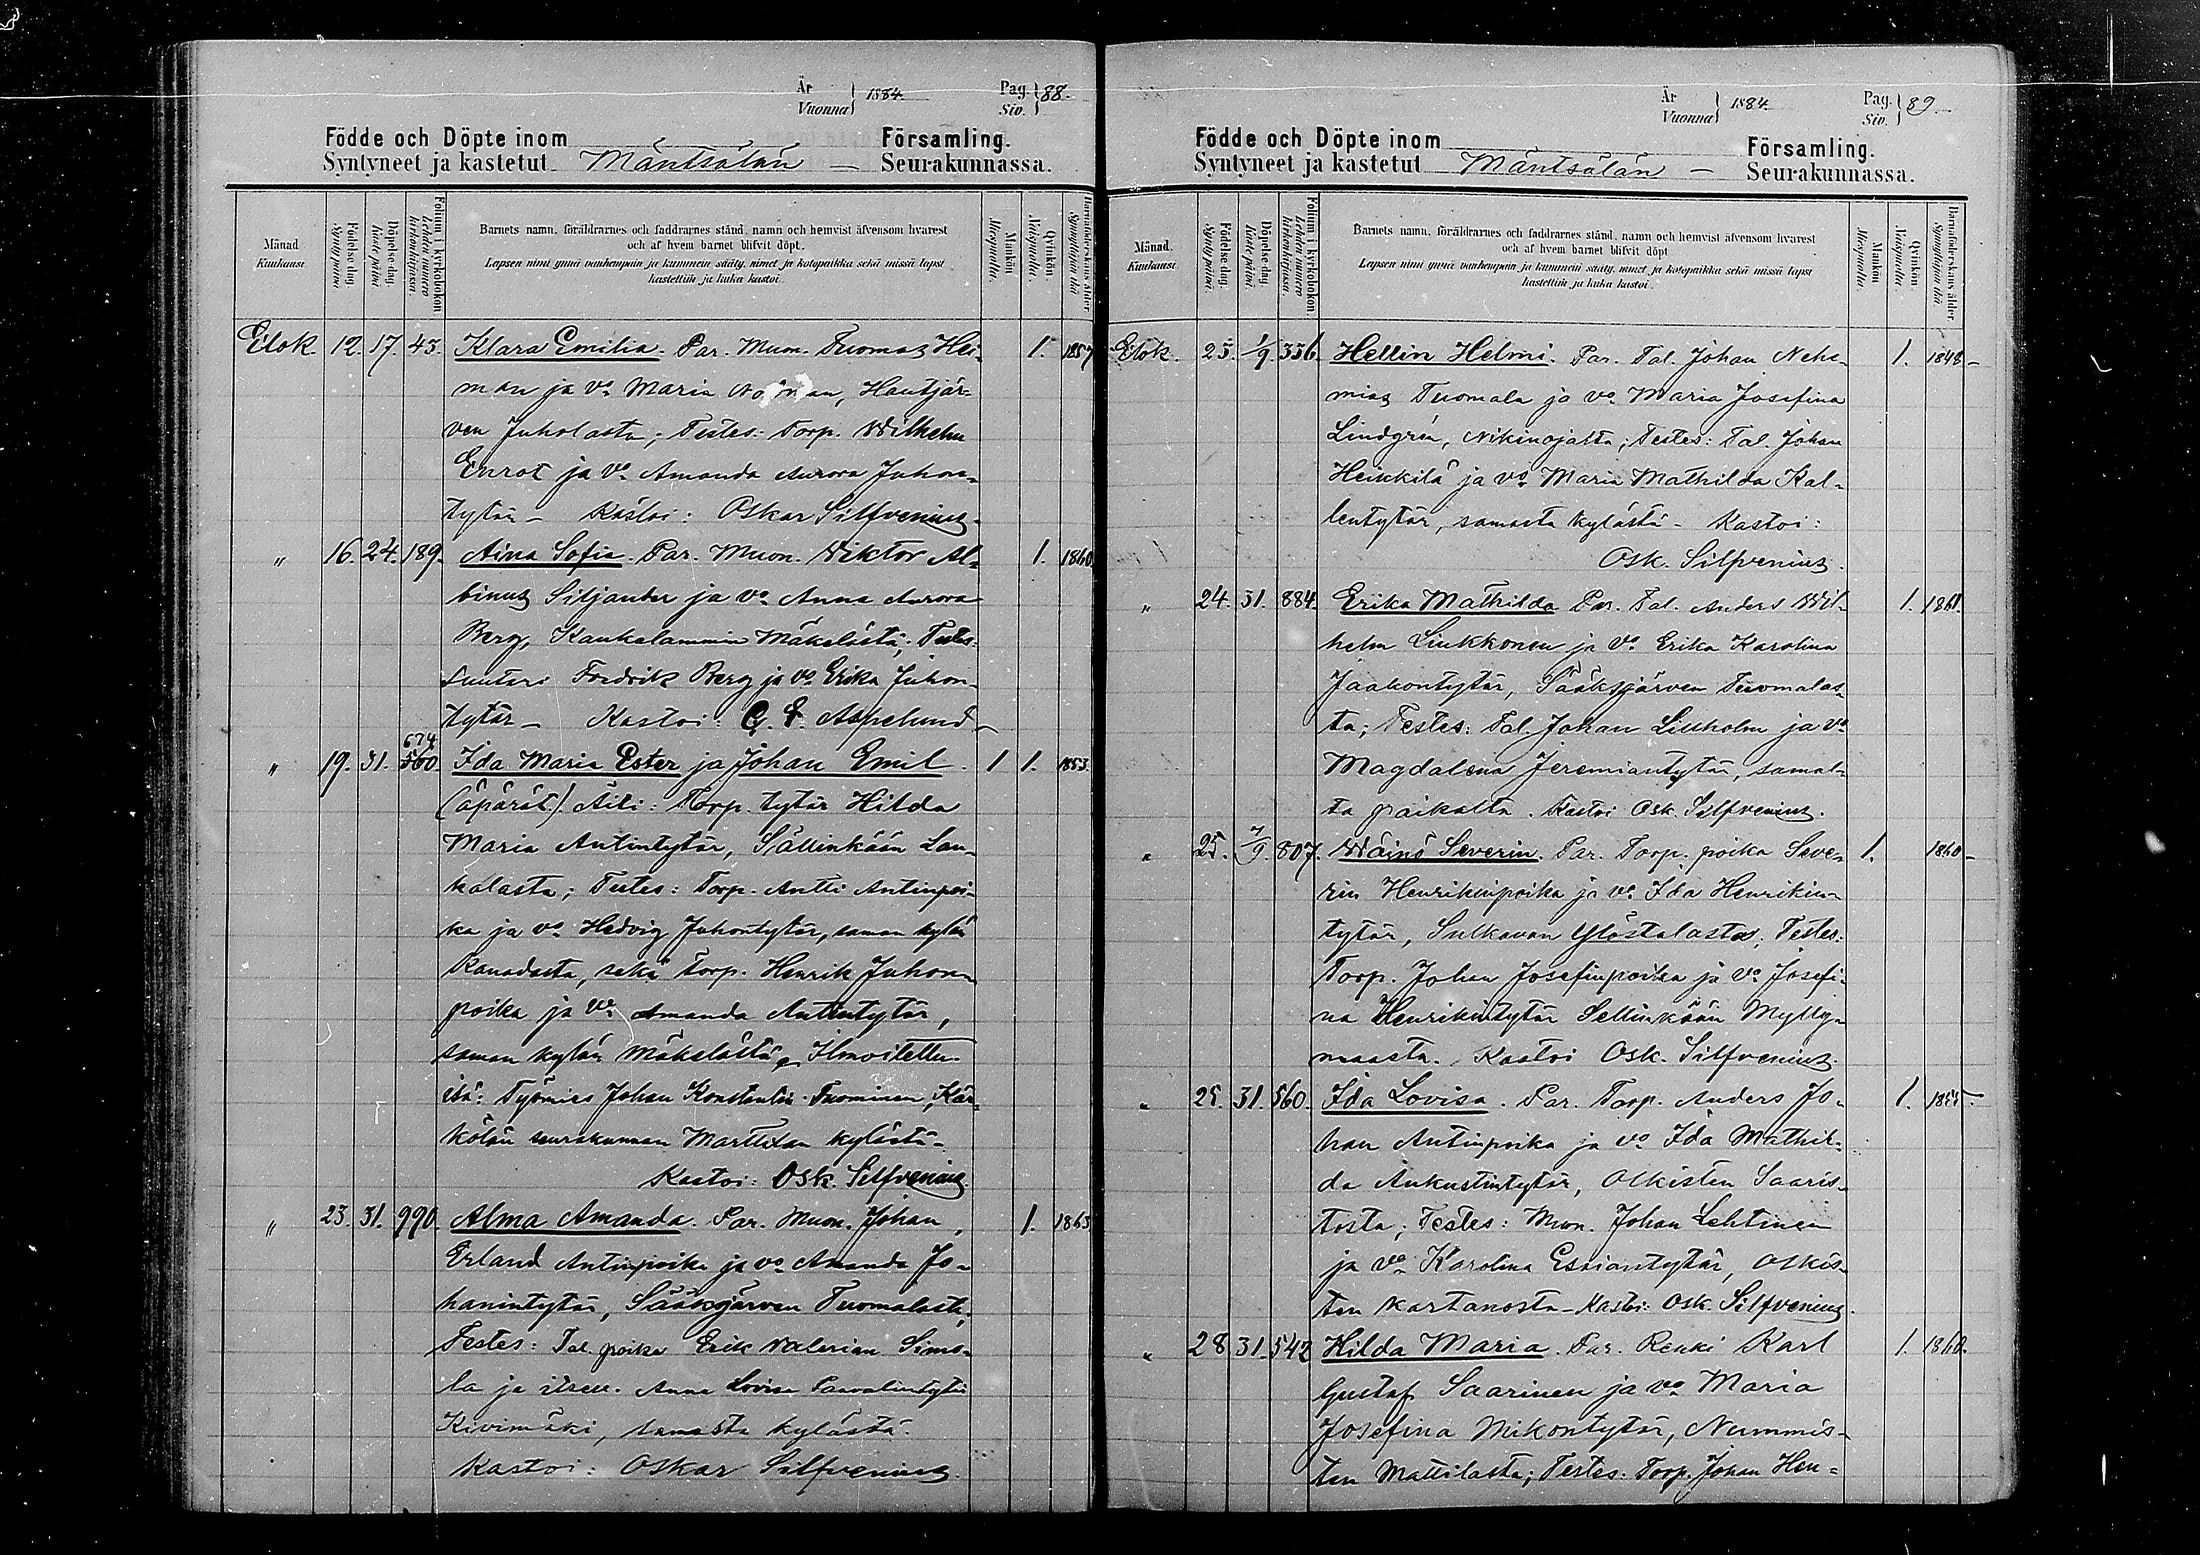 År
Vuonna } 1884.
Pag.
Siv. } 88.
Födde och Döpte inom Församling.
Syntyneet ja kastetut Mäntsälän — Seurakunnassa.
Månad
Kuukausi.
Födelse dag.
Syntymä päivä
Döpelse dag.
Kaste päivä
Folium i kyrkobokon
Lehden numero kirkonkirjassa.
Barnets namn, föräldrarnes och faddrarnes stånd, namn och hemvist äfvensom hvarest
och af hvem barnet blifvit döpt.
Lapsen nimi ynnä vanhempain ja kummein sääty, nimet ja kotopaikka sekä missä lapsi
kastettiin ja kuka kastoi.
Mankön
Miespuolta.
Qvinkön.
Naispuolta.
Barnaföderskans ålder
Synnyttäjän ikä
Elok. 12. 17. 43. Klara Emilia. Par. Muon. Tuomas Hei- 1. 1857
man ja vo. Maria, Hautjär-
ven Juholasta; Testes: Torp. Wilhelm
Enrot ja vo. Amanda Aurora Juhon-
tytär — Kastoi: Oskar Silfvenius.
" 16. 24. 189. Aina Sofia. Par. Muon. Wiktor Al- 1. 1860
binus Siljander ja vo. Anna Aurora
Berg, Kaukalammin Mäkelästä; Testes:
Suutari Fredrik Berg ja vo. Erika Juhon-
tytär — Kastoi: G. E. Aspelund —
674
" 19. 31. 560. Ida Maria Ester ja Johan Emil. 1 1. 1853.
(äpärät). Äiti: Torp. tytär Hilda
Maria Antintytär, Sällinkään Lau-
kalasta; Testes: Torp. Antti Antinpoi-
ka ja vo. Hedvig Juhontytär, saman kylän
Kanadasta, sekä Torp. Henrik Juhon-
poika ja vo. Amanda Antintytär,
saman kylän Mäkelästä, Ilmoitettu
isä: Työmies Johan Konstantin Tuominen, Kär-
kölän seurakunnan Marttilan kylästä.
Kastoi: Osk. Silfvenius.
" 23. 31. 990. Alma Amanda. Par. Muon. Johan 1. 1863
Erland Antinpoika ja vo. Amanda Jo-
hanintytär, Sääksjärven Tuomalasta;
Testes: Tal. poika Erik Valerian Simo-
la ja itsell. Anna Lovisa Paavalintytär
Kivimäki, samasta kylästä.
Kastoi: Oskar Silfvenius.
År
Vuonna } 1884.
Pag.
Siv. } 89.
Födde och Döpte inom Församling.
Syntyneet ja kastetut Mäntsälän — Seurakunnassa.
Månad.
Kuukausi.
Födelse dag.
Syntymä päivä.
Döpelse dag.
Kaste päivä.
Folium i kyrkobokon
Lehden numero kirkonkirjassa.
Barnets namn, föräldrarnes och faddrarnes stånd, namn och hemvist äfvensom hvarest
och af hvem barnet blifvit döpt
Lapsen nimi ynnä vanhempain ja kummein sääty, nimet ja kotopaikka sekä missä lapsi
kastettiin ja kuka kastoi.
Mankön
Miespuolta.
Qvinkön
Naispuolta.
Barnaföderskans ålder.
Synnyttäjän ikä.
Elok. 25. 1/9. 356. Hellin Helmi. Par. Tal. Johan Nehe- 1. 1848 —
mias Tuomala ja vo. Maria Josefina
Lindgrén, Nikinojalta; Testes: Tal. Johan
Heikkilä ja vo. Maria Mathilda Kal-
lentytär, samasta kylästä — Kastoi:
Osk. Silfvenius.
" 24. 31. 884. Erika Mathilda Par. Tal. Anders Wil- 1. 1861.
helm Liukkonen ja vo. Erika Karolina
Jaakontytär, Sääksjärven Tuomalas-
ta; Testes: Tal. Johan Lillholm ja vo
Magdalena Jeremiantytär, samal-
ta paikalta. Kastoi Osk. Silfvenius.
" 25. 7/9. 807. Wäinö Severin. Par. Torp. poika Seve- 1. 1860 —
rin Henrikinpoika ja vo. Ida Henrikin-
tytär, Sulkavan Ylöstalosta; Testes:
Torp. Johan Josefinpoika ja vo. Josefi-
na Henrikintytär Sellinkään Mylly-
maasta. Kastoi Osk. Silfvenius.
" 25. 31. 560. Ida Lovisa. Par. Torp. Anders Jo- 1. 1855.
han Antinpoika ja vo Ida Mathil-
da Aukustintytär, Olkisten Saaris-
tosta; Testes: Muon. Johan Lehtinen
ja vo. Karolina Esaiantytär, Olkis-
ten Kartanosta — Kastoi: Osk. Silfvenius.
" 28 31. 542 Hilda Maria. Par. Renki Karl 1. 1860.
Gustaf Saarinen ja vo. Maria
Josefina Mikontytär, Nummis-
ten Mattilasta; Testes. Torp. Johan Hen=